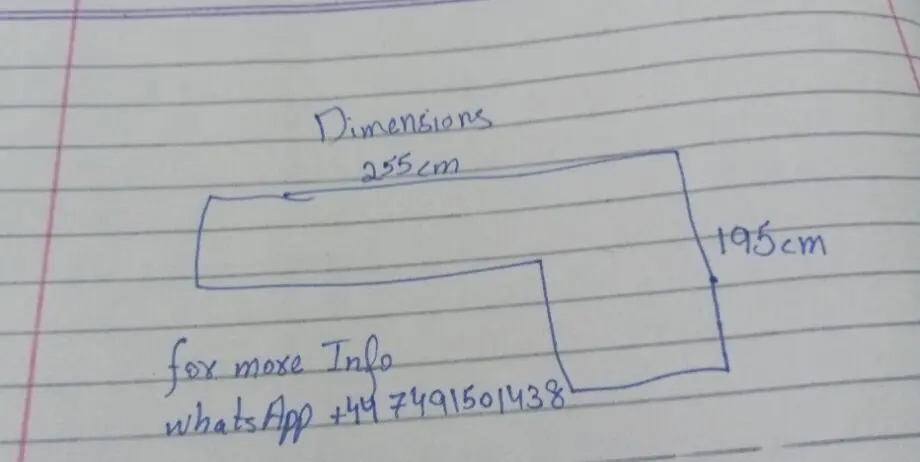 Dimensions
255cm
195cm
for more Info
whatsApp +44 7491501438